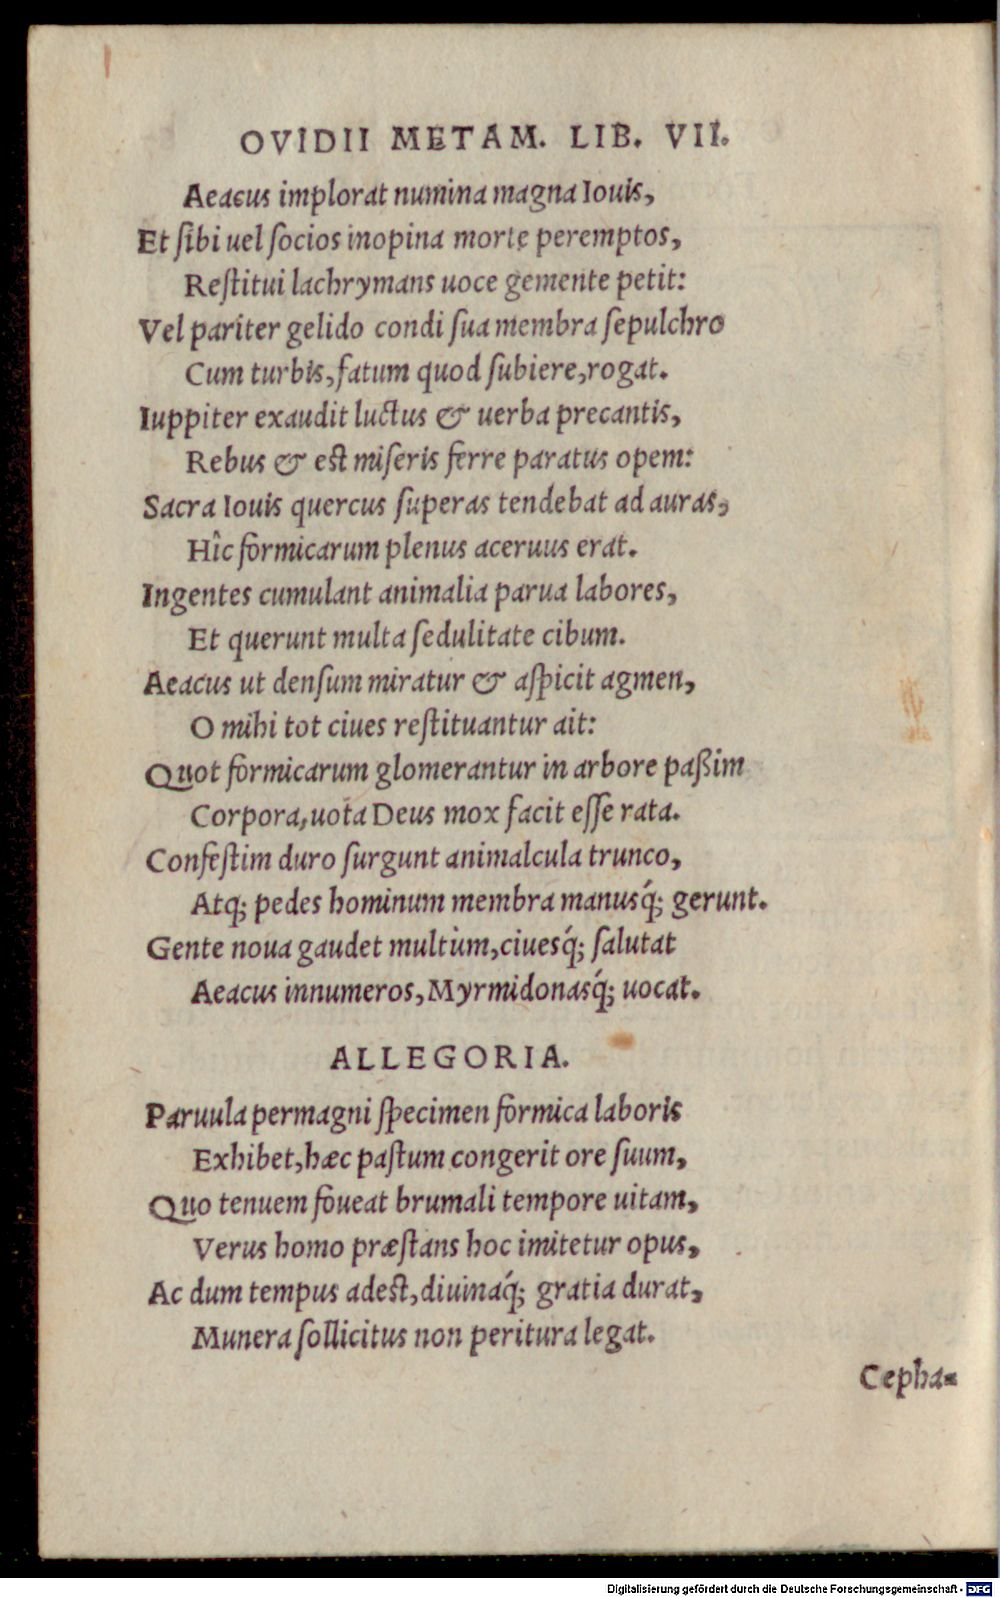 OVIDII METAM. LIB. VII.
Aeacus implorat numina magna Iouis,
Et ſibi uel ſocios inopina morte peremptos,
Reſtitui lachrymans uoce gemente petit:
Vel pariter gelido condi ſua membra ſepulchro
Cum turbis, fatum quod ſubiere, rogat.
Iuppiter exaudit luctus & uerba precantis,
Rebus & eſt miſeris ferre paratus opem:
Sacra Iouis quercus ſuperas tendebat ad auras,
Hîc formicarum plenus aceruus erat.
Ingentes cumulant animalia parua labores,
Et querunt multa ſedulitate cibum.
Aeacus ut denſum miratur & aſpicit agmen,
O mihi tot ciues reſtituantur ait:
Quot formicarum glomerantur in arbore paßim
Corpora, uota Deus mox facit eſſe rata.
Confeſtim duro ſurgunt animalcula trunco,
Atq; pedes hominum membra manusq́; gerunt.
Gente noua gaudet multùm, ciuesq́; ſalutat
Aeacus innumeros, Myrmidonasq́; uocat.
ALLEGORIA.
Paruula permagni ſpecimen formica laboris
Exhibet, hæc paſtum congerit ore ſuum,
Quo tenuem foueat brumali tempore uitam,
Verus homo præſtans hoc imitetur opus,
Ac dum tempus adeſt, diuinaq́; gratia durat,
Munera ſollicitus non peritura legat.
Cepha-
Digitalisierung gefördert durch die Deutsche Forschungsgemeinschaft - DFG